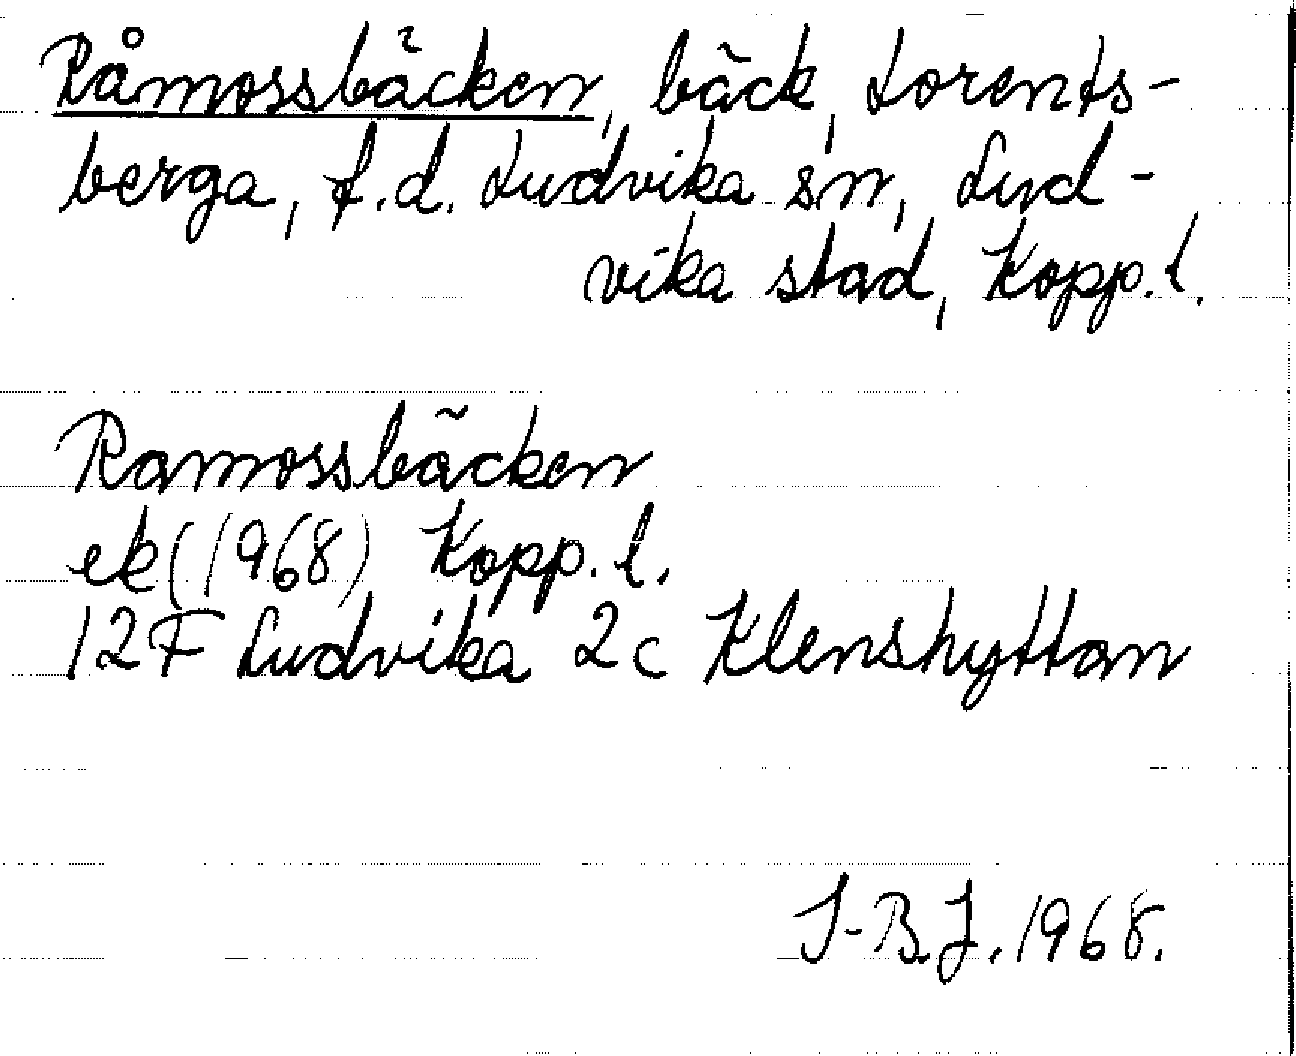 Råmossbäcken, bäck, Lorents-
berga, f.d. Ludvika sn, Lud-
vika stad, Kopp. l.
Ramossbäcken
ek (1968) Kopp. l.
12F Ludvika 2c Klenshyttan
I-B.J. 1968.